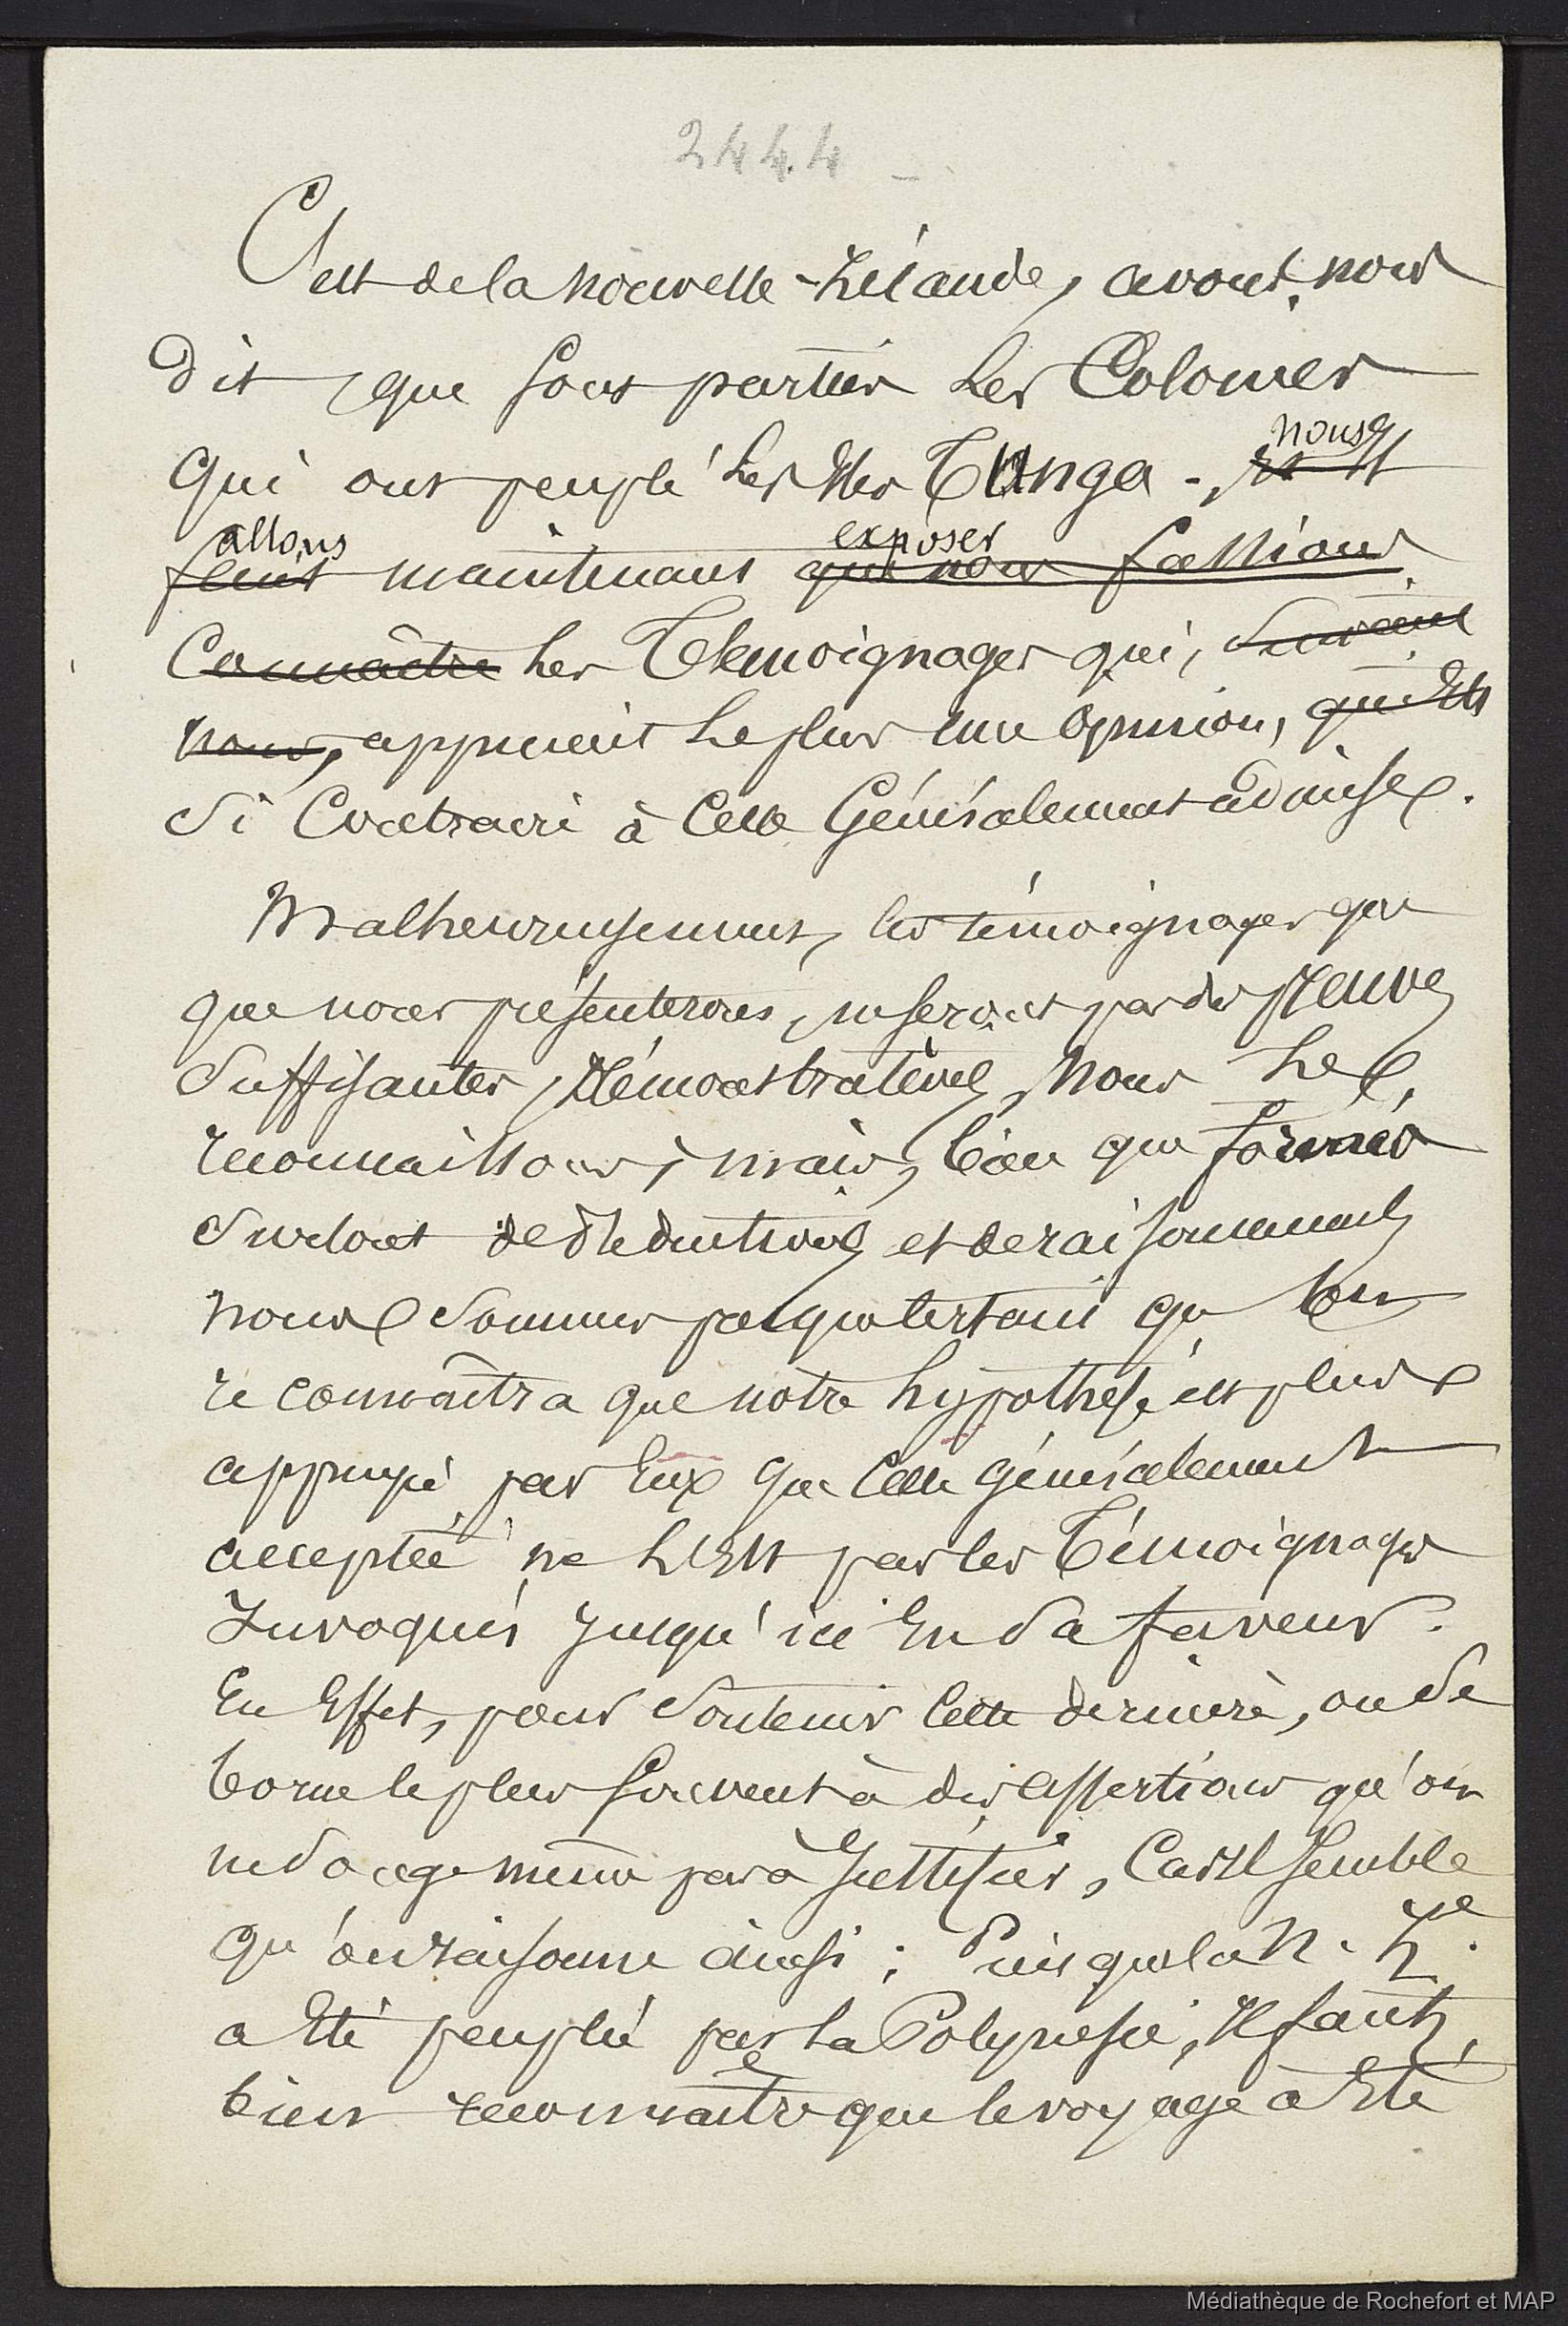 2444 -
C'est de la Nouvelle-Zélande, avons-nous
dit, que sont parties les Colonies
qui ont peuplé les Iles Tunga. nous
allons maintenant exposer que nous fassions
Connaître les Témoignages qui, suivant
nous, appuient le plus une opinion, qui est
si Contraire à Celle Généralement admise.
Malheureusement, les témoignages que
que nous présenterons, ne seront pas des preuves
suffisantes, démonstratives, nous le
reconnaissons; mais, bien que formés
surtout de déductions et de raisonnements
nous sommes presque certain qu'on
reconnaîtra que notre hypothèse est plus
appuyée par Eux que Celle généralement
acceptée ne l'Est par les Témoignages
Invoqués Jusqu'ici En sa faveur.
En Effet, pour soutenir Cette dernière, on se
borne le plus souvent à des assertions qu'on
ne songe même pas à Justifier, Car Il semble
qu'on raisonne ainsi: Puisque la N. Ze.
a Eté peuplée par la Polynésie, Il faut
bien reconnaître que le voyage a Eté
Médiathèque de Rochefort et MAP